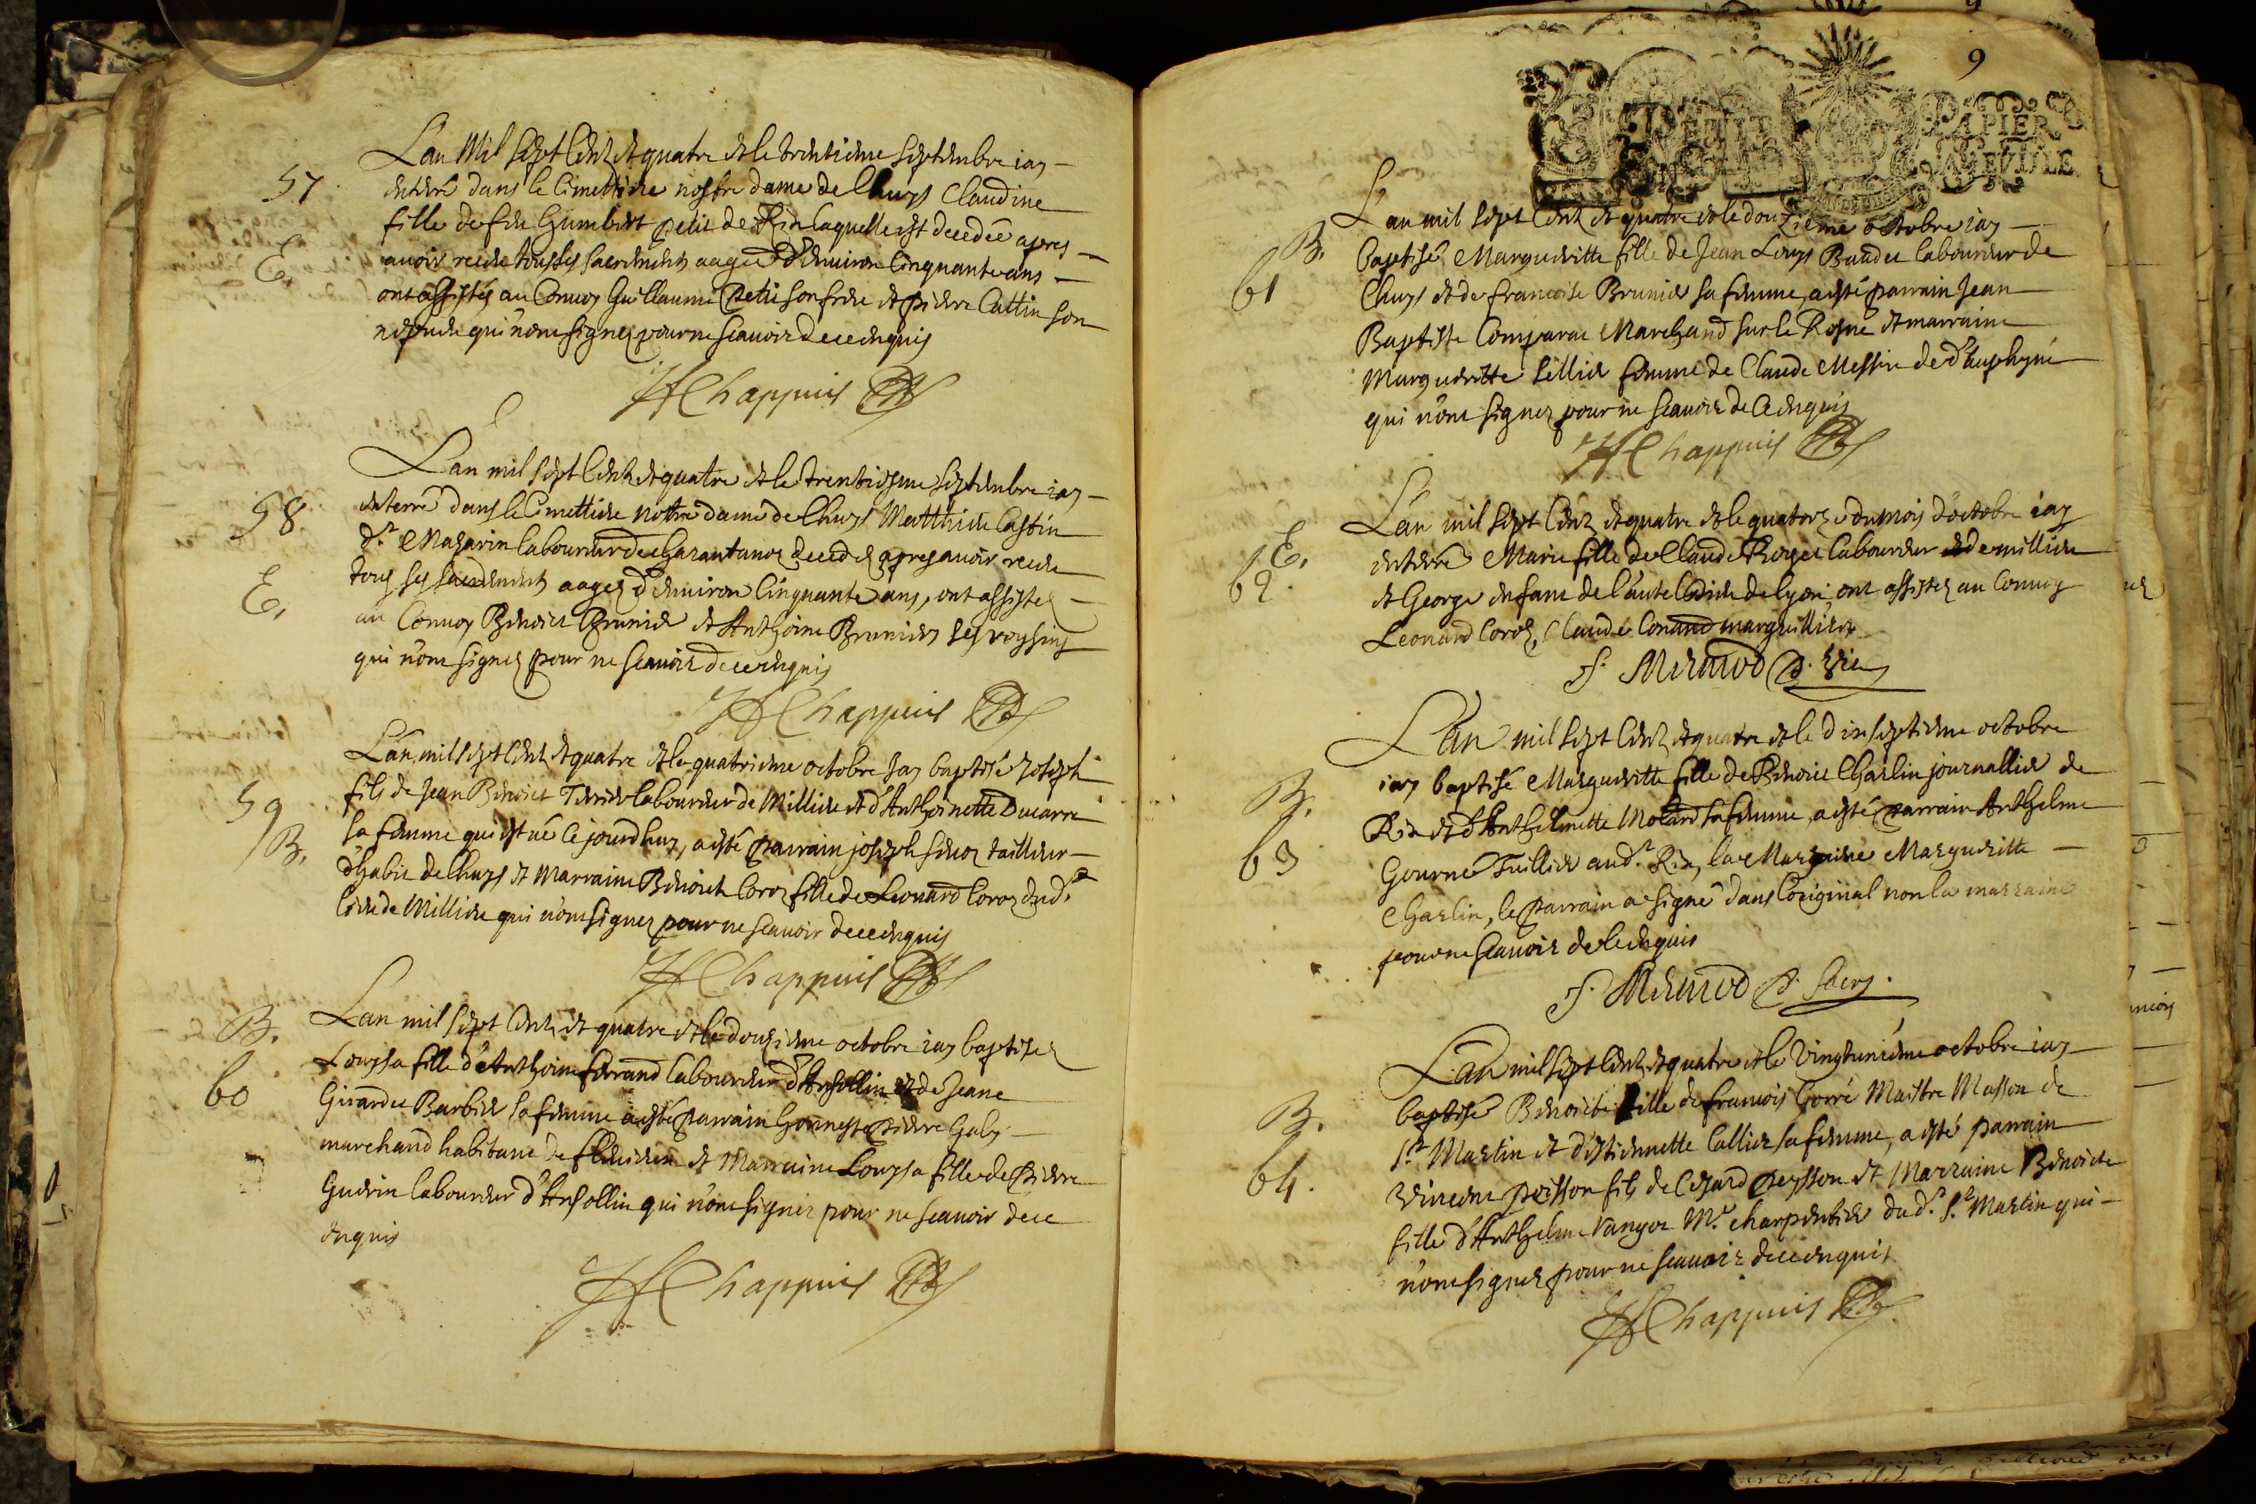 57
E.
Lan Mil sept Cent et quatre et le trentieme septembre iay
enterré dans le Cimettiere nostre dame de Lhuys Claudine
fille de feu Humbert petit de Rix laquelle est decedée apres
auoir receu tous ses sacrements aagée d'enuiron Cinquante ans
ont assistés au Conuoy Guillaume Petit son frere et Pierre Cattin son
nepueu qui n'ont signez pour ne scauoir de ce enquis
Chappuis
58
E.
Lan mil sept Cent et quatre et le trentiesme septembre iay
enterré dans le Cimettiere notre dame de Lhuys Matthieu Castin
d.t Mazarin laboureur de Charantanoz decedé apres auoir receu
tous ses sacrements aagez d'enuiron Cinquante ans, ont assistez
au Conuoy Benoict Brunier et Anthoine Brunier ses voysins
qui n'ont signez pour ne scauoir de ce enquis
Chappuis
59
B.
Lan mil sept Cent et quatre et le quatrieme octobre Jay baptisé Joseph
fils de Jean Benoict laboureur de Millieu et d'Anthoinette Ducarre
sa femme qui est né ce jourdhuy, a esté parrain joseph tailleur
d'habit de Lhuys et Marraine Benoiste Coroz fille de Leonard Coroz dud.t
lieu de Millieu qui n'ont signez pour ne scauoir de ce enquis
Chappuis
B.
60
Lan mil sept Cent et quatre et le douzieme octobre iay baptisez
Louysa fille d'Anthoine ferrand laboureur d'Ansollin et de Jeane
Girardet Barbier sa femme a esté parrain honneste Pierre Galy
marchand habitant de et Marraine Louysa fille de Pierre
Guerin laboureur d'Ansollin qui n'ont signez pour ne scauoir de ce
enquis
Chappuis
9
PETIT PAPIER
B.
61
Lan mil sept Cent et quatre et le douzieme octobre iay
baptisé Margueritte fille de Jean Louys Baudet laboureur de
Lhuys et de francoise Brunier sa femme, a esté parrain Jean
Baptiste Comparat Marchand sur le Rosne et marraine
Margueritte Sillier femme de Claude Messin de d'auphyné
qui n'ont signez pour ne scauoir de Ce enquis
Chappuis
E.
62.
Lan mil sept Cent et quatre et le quatorze du mois d'octobre iay
enterré Marie fille de Claude Roset laboureur de millieu
et George enfant de l'aute de lyon, ont assistez au Conuoy
Leonard Coroz, Claude Conand marguillier
Mermod
B.
63
Lan mil sept Cent et quatre et le dixseptieme octobre
iay baptisé Margueritte fille de Benoict Charlin journallier de
Rix et d'Anthelmette Molard sa femme, a esté parrain Anthelme
Gourné Tuillier aud.t Rix, la Marraine Margueritte
Charlin, le parrain a signé dans l'original non la marraine
pour ne scauoir de Ce enquis
Mermod
B.
64.
Lan mil sept Cent et quatre et le vingtunieme octobre iay
baptisé Benoicte fille de francois Gorré Maistre Masson de
S.t Martin et d'estiennette Callier sa femme, a esté parrain
Vincent poisson fils de Cesard peysson et Marraine Benoicte
fille d'Anthelme Vangoz M.e charpentier dud.t S.t Martin qui
n'ont signez pour ne scauoir de ce enquis
Chappuis